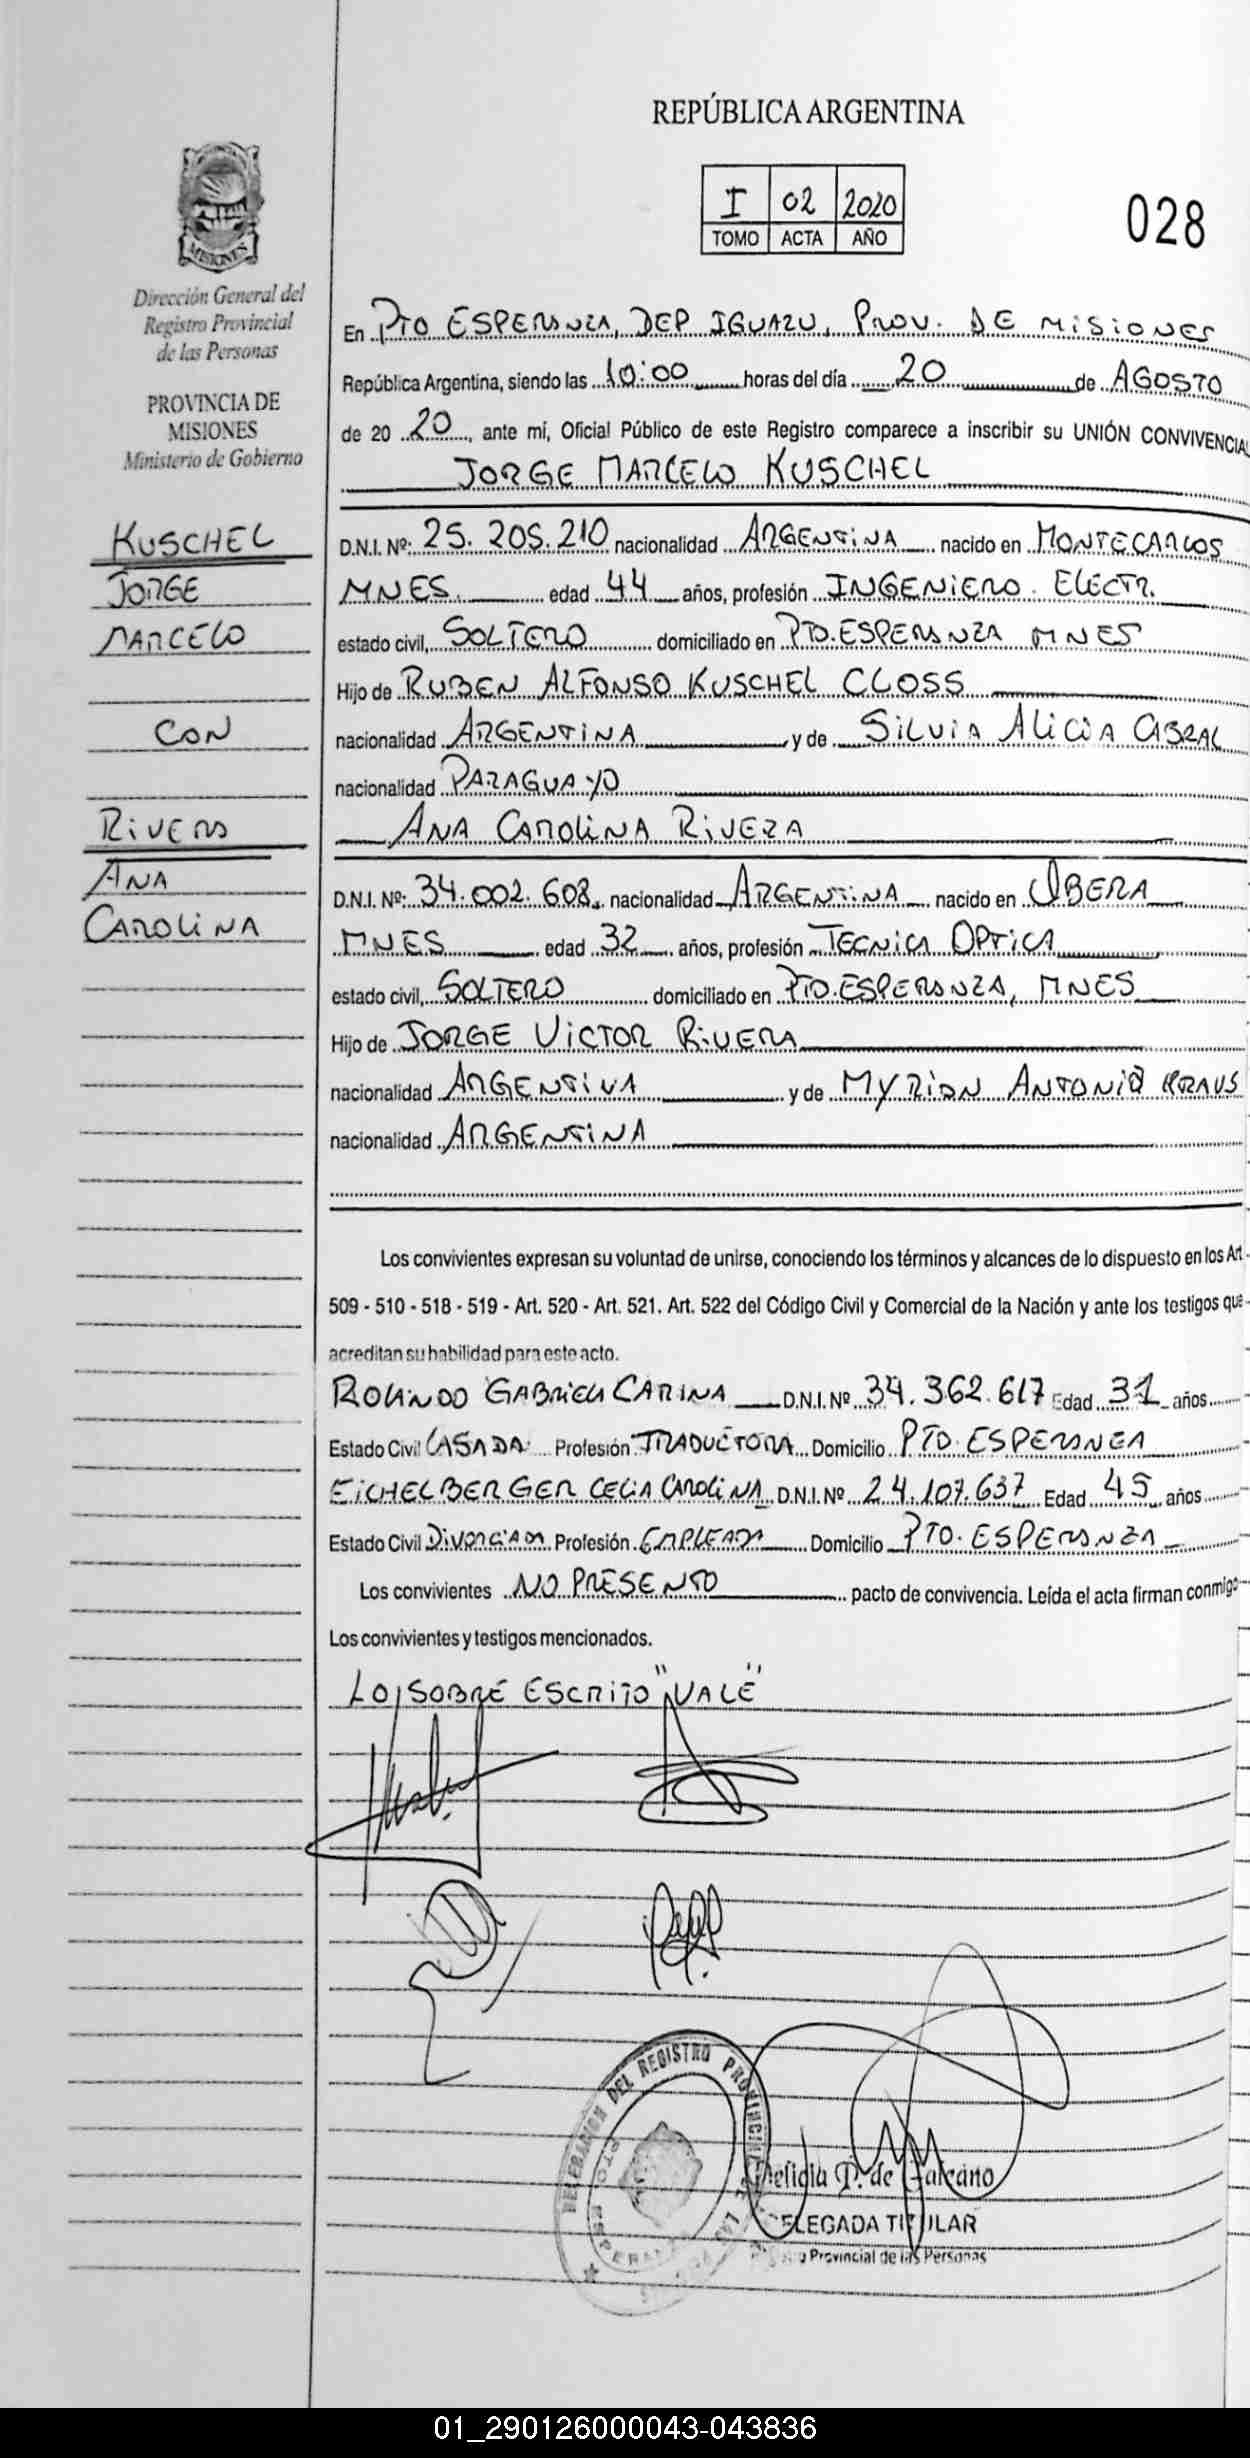 REPÚBLICA ARGENTINA
I 02 2020
TOMO ACTA AÑO
028
MISIONES
Dirección General del
Registro Provincial
de las Personas
PROVINCIA DE
MISIONES
Ministerio de Gobierno
KUSCHEL
JORGE
MARCELO
CON
RIVERA
ANA
CAROLINA
En PTO ESPERANZA, DEP IGUAZU, PROV. DE MISIONES
República Argentina, siendo las 10:00 horas del día 20 de AGOSTO
de 20 20, ante mí, Oficial Público de este Registro comparece a inscribir su UNIÓN CONVIVENCIAL
JORGE MARCELO KUSCHEL
D.N.I. Nº: 25.205.210 nacionalidad ARGENTINA nacido en MONTECARLOS
MNES. edad 44 años, profesión INGENIERO ELECTR.
estado civil, SOLTERO domiciliado en PTO. ESPERANZA MNES
Hijo de RUBEN ALFONSO KUSCHEL CLOSS
nacionalidad ARGENTINA y de SILVIA ALICIA CABRAL
nacionalidad PARAGUAYO
ANA CAROLINA RIVERA
D.N.I. Nº: 34.002.608 nacionalidad ARGENTINA nacido en OBERA
MNES edad 32 años, profesión TECNICA OPTICA
estado civil, SOLTERO domiciliado en PTO. ESPERANZA, MNES
Hijo de JORGE VICTOR RIVERA
nacionalidad ARGENTINA y de MYRIAN ANTONIA KRAUS
nacionalidad ARGENTINA
Los convivientes expresan su voluntad de unirse, conociendo los términos y alcances de lo dispuesto en los Art
509 - 510 - 518 - 519 - Art. 520 - Art. 521. Art. 522 del Código Civil y Comercial de la Nación y ante los testigos que
acreditan su habilidad para este acto.
ROLANDO GABRIELA CARINA D.N.I. Nº 34.362.617 Edad 31 años
Estado Civil CASADA Profesión TRADUCTORA Domicilio PTO. ESPERANZA
EICHELBERGER CELIA CAROLINA D.N.I. Nº 24.107.637 Edad 45 años
Estado Civil DIVORCIADA Profesión EMPLEADA Domicilio PTO. ESPERANZA
Los convivientes NO PRESENTO pacto de convivencia. Leída el acta firman conmigo
Los convivientes y testigos mencionados.
LO SOBRE ESCRITO "VALE"
DEL REGISTRO PROVINCIAL
T. de Galeano
DELEGADA TITULAR
Provincial de las Personas
01_290126000043-043836